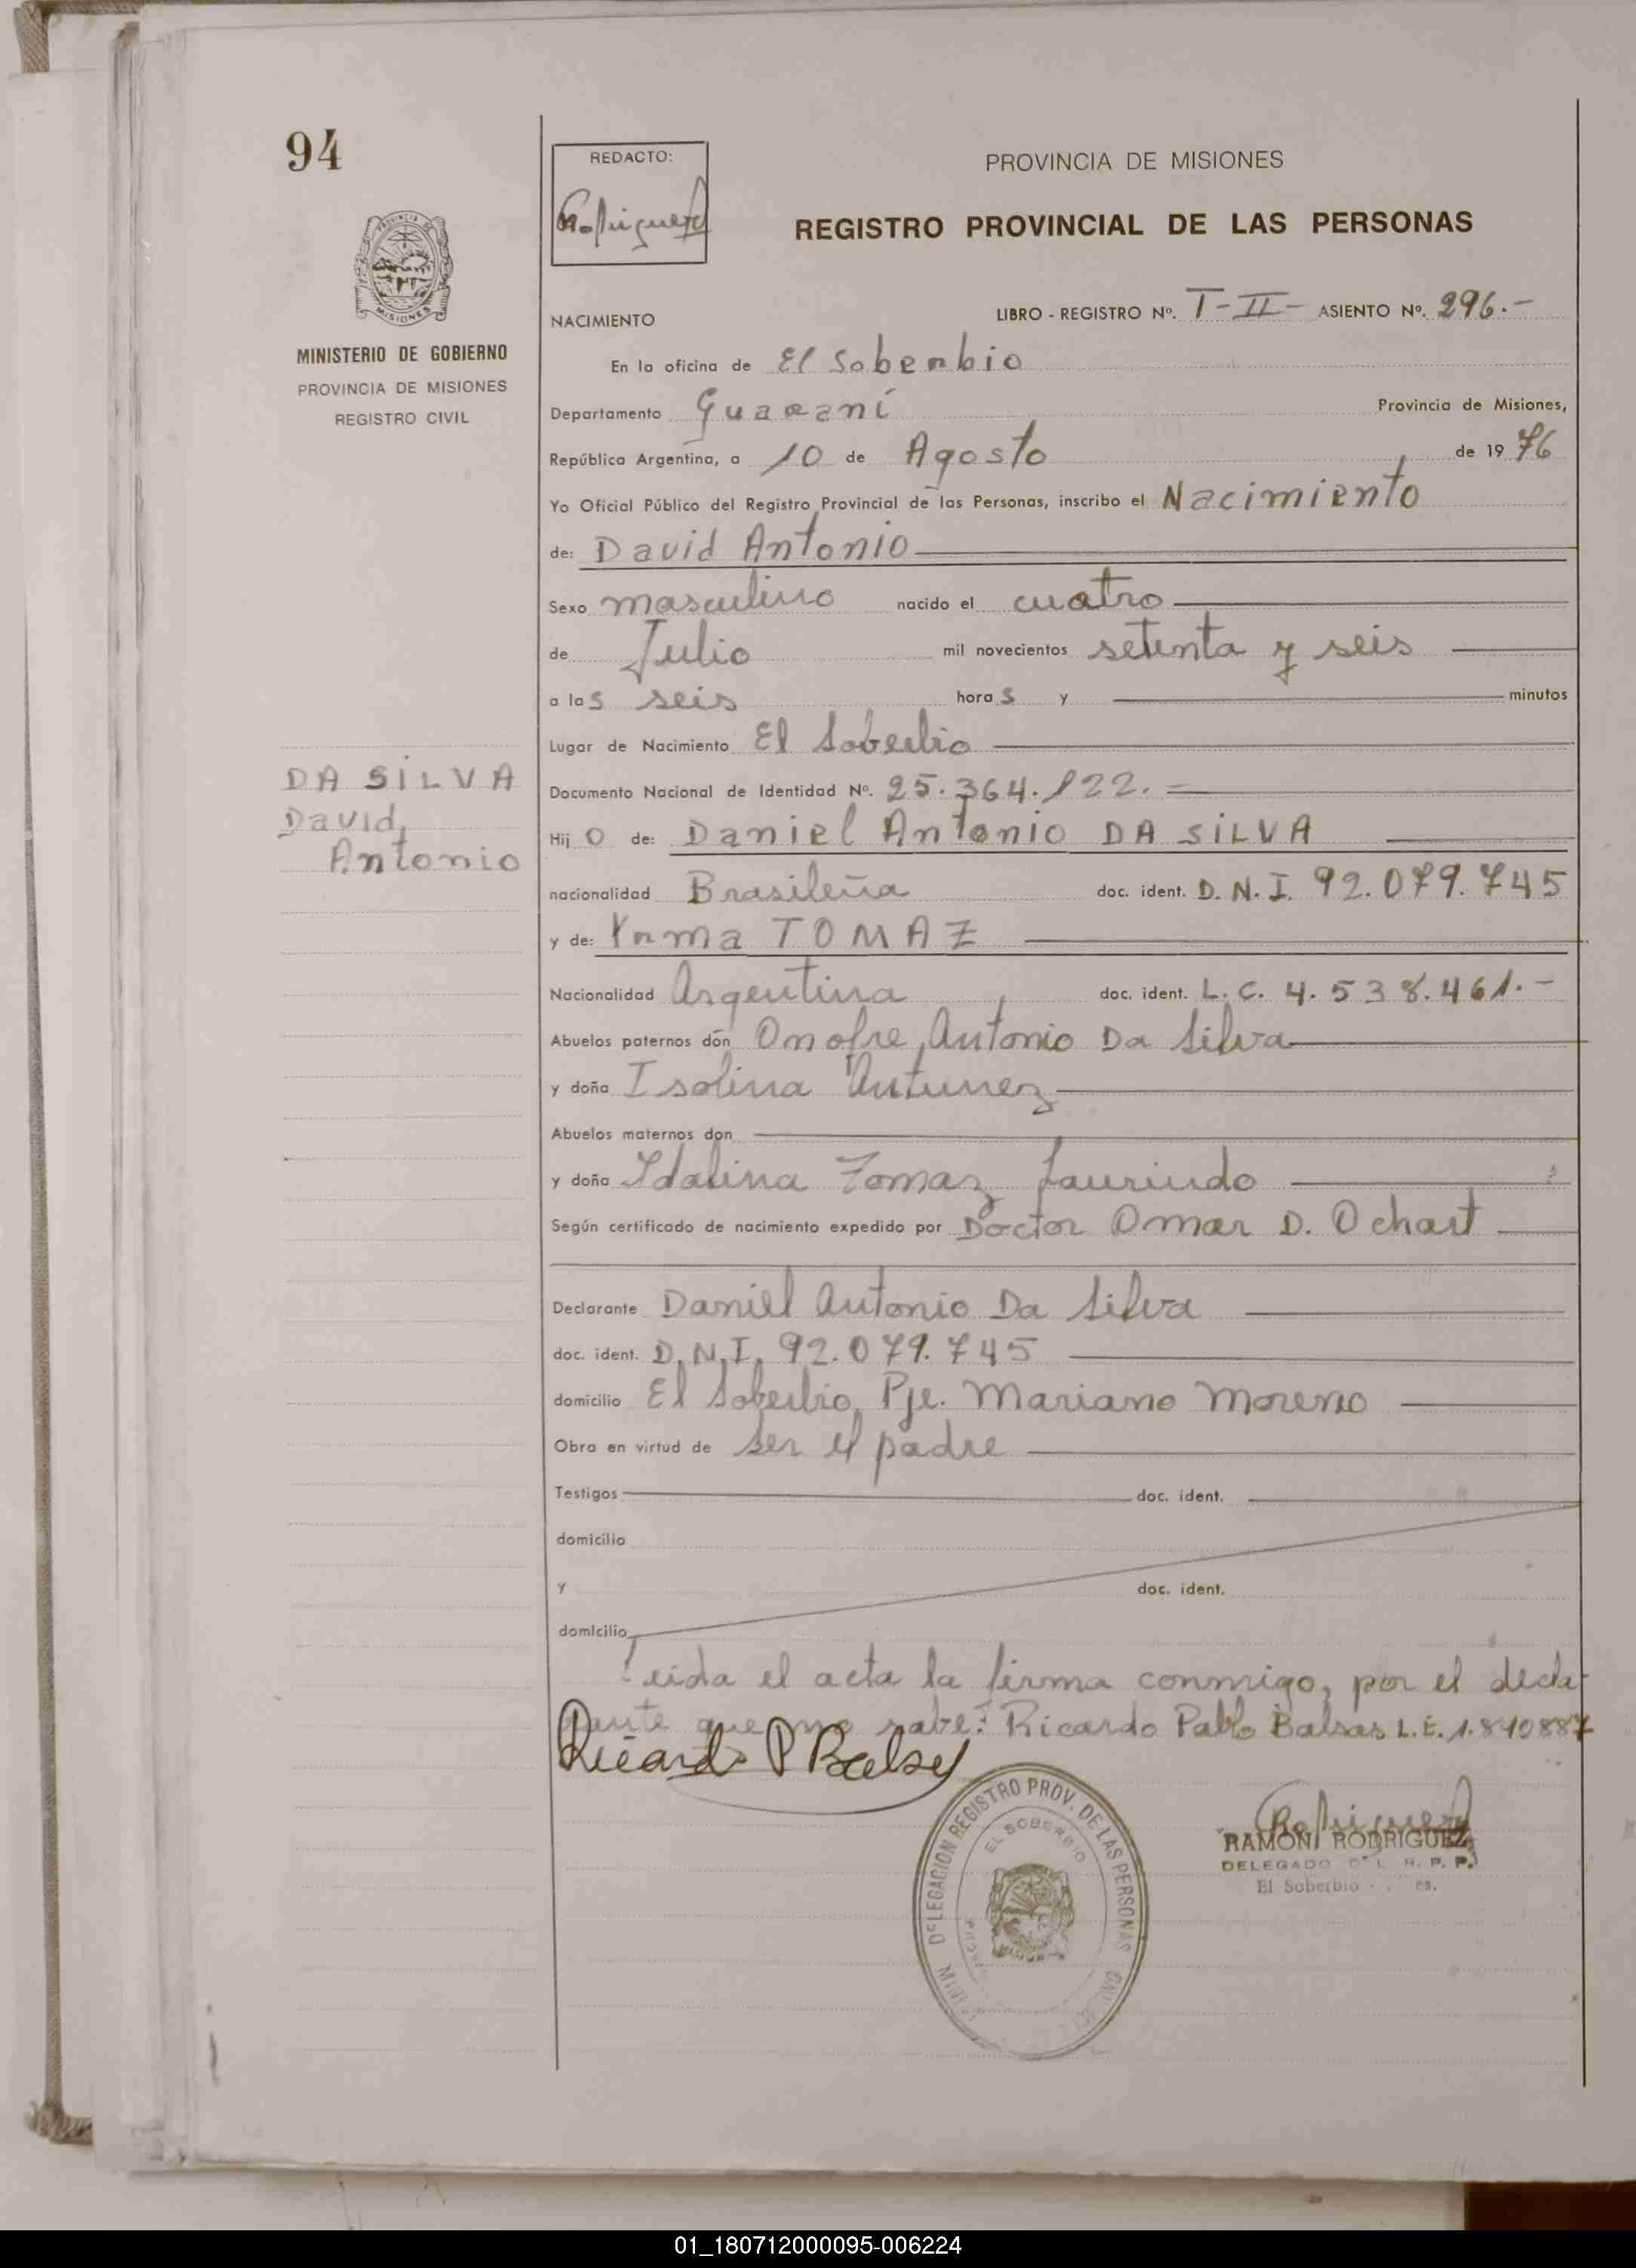 94
REDACTO:
PROVINCIA DE MISIONES
REGISTRO PROVINCIAL DE LAS PERSONAS
MINISTERIO DE GOBIERNO
PROVINCIA DE MISIONES
REGISTRO CIVIL
NACIMIENTO
LIBRO - REGISTRO Nº. T-II- ASIENTO Nº. 296.-
En la oficina de El Soberbio
Departamento Guaraní Provincia de Misiones,
República Argentina, a 10 de Agosto de 1976
Yo Oficial Público del Registro Provincial de las Personas, inscribo el Nacimiento
de: David Antonio
Sexo masculino nacido el cuatro
de Julio mil novecientos setenta y seis
a las seis horas y minutos
Lugar de Nacimiento El Soberbio
DA SILVA
David,
Antonio
Documento Nacional de Identidad Nº. 25.364.122.=
Hijo de: Daniel Antonio DA SILVA
nacionalidad Brasileña doc. ident. D.N.I. 92.079.745
y de: Yrma TOMAZ
Nacionalidad Argentina doc. ident. L.C. 4.538.461.-
Abuelos paternos don Onofre Antonio Da Silva
y doña Isolina Antunez
Abuelos maternos don
y doña Idalina Tomaz Laurindo
Según certificado de nacimiento expedido por Doctor Omar D. Ochart
Declarante Daniel Antonio Da Silva
doc. ident. D.N.I. 92.079.745
domicilio El Soberbio, Pje. Mariano Moreno
Obra en virtud de ser el padre
Testigos doc. ident.
domicilio
y doc. ident.
domicilio
Leida el acta la firma conmigo, por el decla-
rante que no sabe: Ricardo Pablo Balsas L.E. 1.840887
DELEGACION REGISTRO PROV. DE LAS PERSONAS
EL SOBERBIO
RAMON RODRIGUEZ
DELEGADO R. P. P.
El Soberbio
01_180712000095-006224